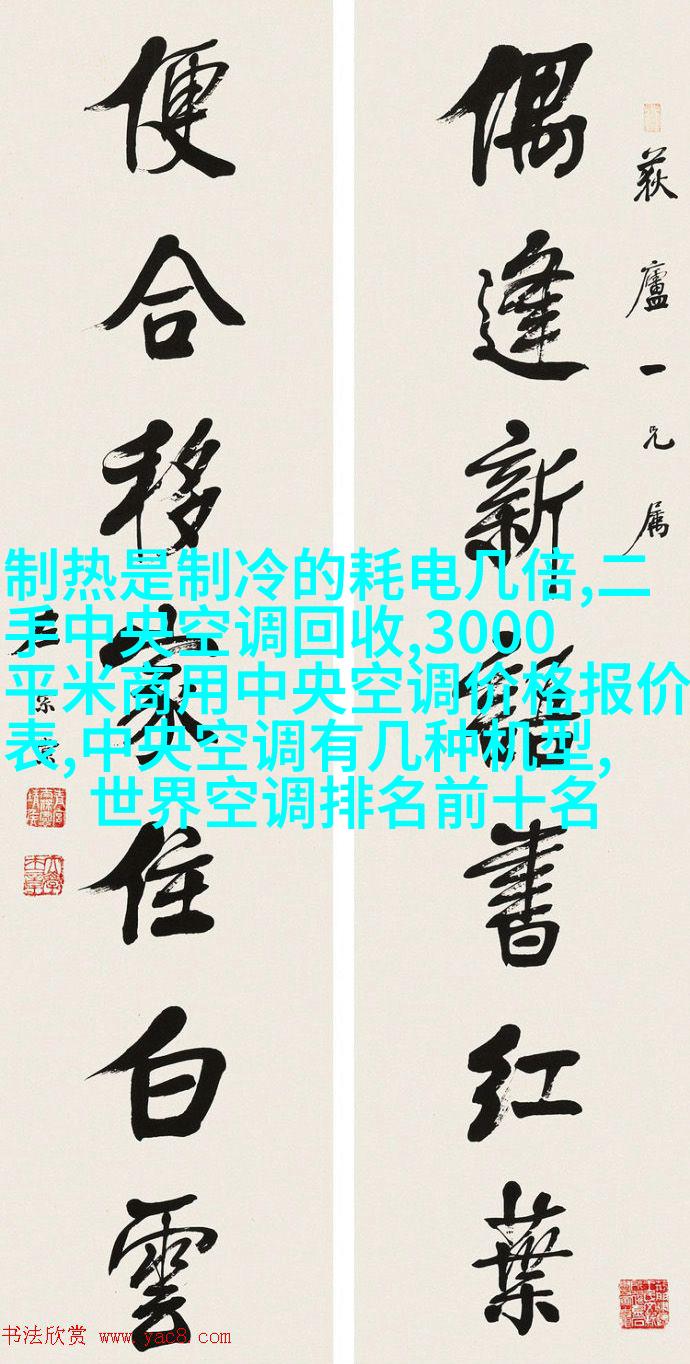 荻廬一兄属
偶逢新語書紅葉
便合移家住白雲
制热是制冷的耗电几倍,二
手中央空调回收,3000
平米商用中央空调价格报价
表,中央空调有几种机型,
世界空调排名前十名
书法欣赏 www.yac8.com